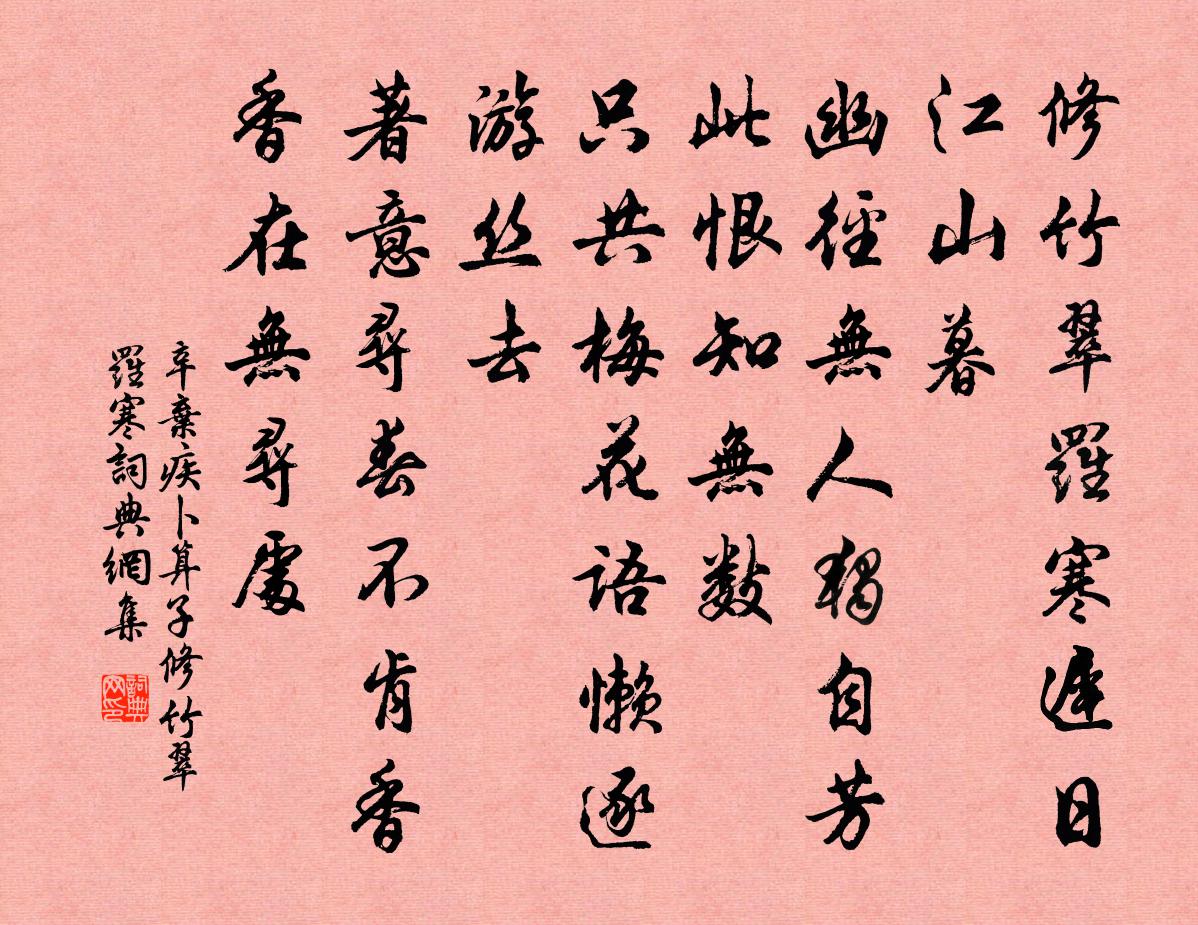 修竹翠羅寒遲日
江山暮
幽徑無人獨自芳
此恨知無數
只共梅花語懶逐
游丝去
著意尋春不肯香
香在無尋處
辛棄疾卜算子修竹翠
羅寒詞典網集
詞典
网印